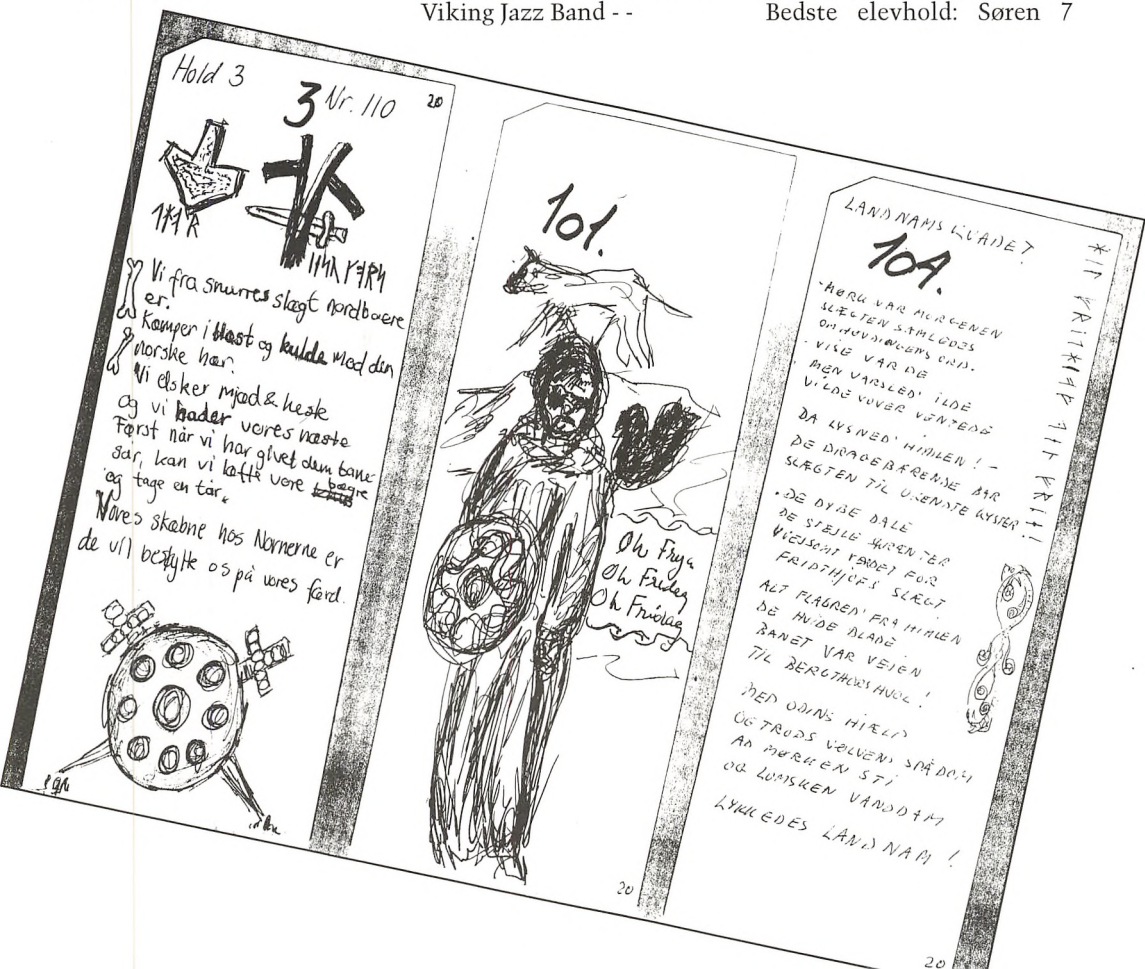 Viking Jazz Band - -
Bedste elevhold: Søren 7
Hold 3
3 Nr. 110
20
Vi fra snurres slægt nordboere
er.
Kæmper i blæst og kulde mod den
norske hær.
Vi elsker mjød & heste
og vi hader vores næste
Først når vi har givet dem bane-
sår, kan vi løfte vore bægre
og tage en tår.
Vores skæbne hos Nornerne er
de vil beskytte os på vores færd.
101.
Oh Frya
Oh Fridag
Oh Fridag
20
LANDNAMSKVADET
104.
MØRK VAR MORGENEN
SLÆGTEN SAMLEDES
OM HØVDINGENS ORD.
VISE VAR DE
MEN VARSLED' ILDE
VILDE VOVER VENTEDE
DA LYSNED' HIMLEN! -
DE DRAGEBÆRENDE BAR
SLÆGTEN TIL UKENDTE KYSTER
DE DYBE DALE
DE STEJLE SKRÆNTER
VIELSOMT FÆRDET FOR
FRIDTHJOFS SLÆGT
ALT FLAGREN' FRA HIMLEN
DE HVIDE BLADE
BANET VAR VEJEN
TIL BERGTHORSHVOL!
MED ODINS HJÆLP
OG TRODS VØLVENS SPÅDOM
AD MØRKEN STI
OG LUMSKEN VANDDAM
LYKKEDES LANDNAM!
20